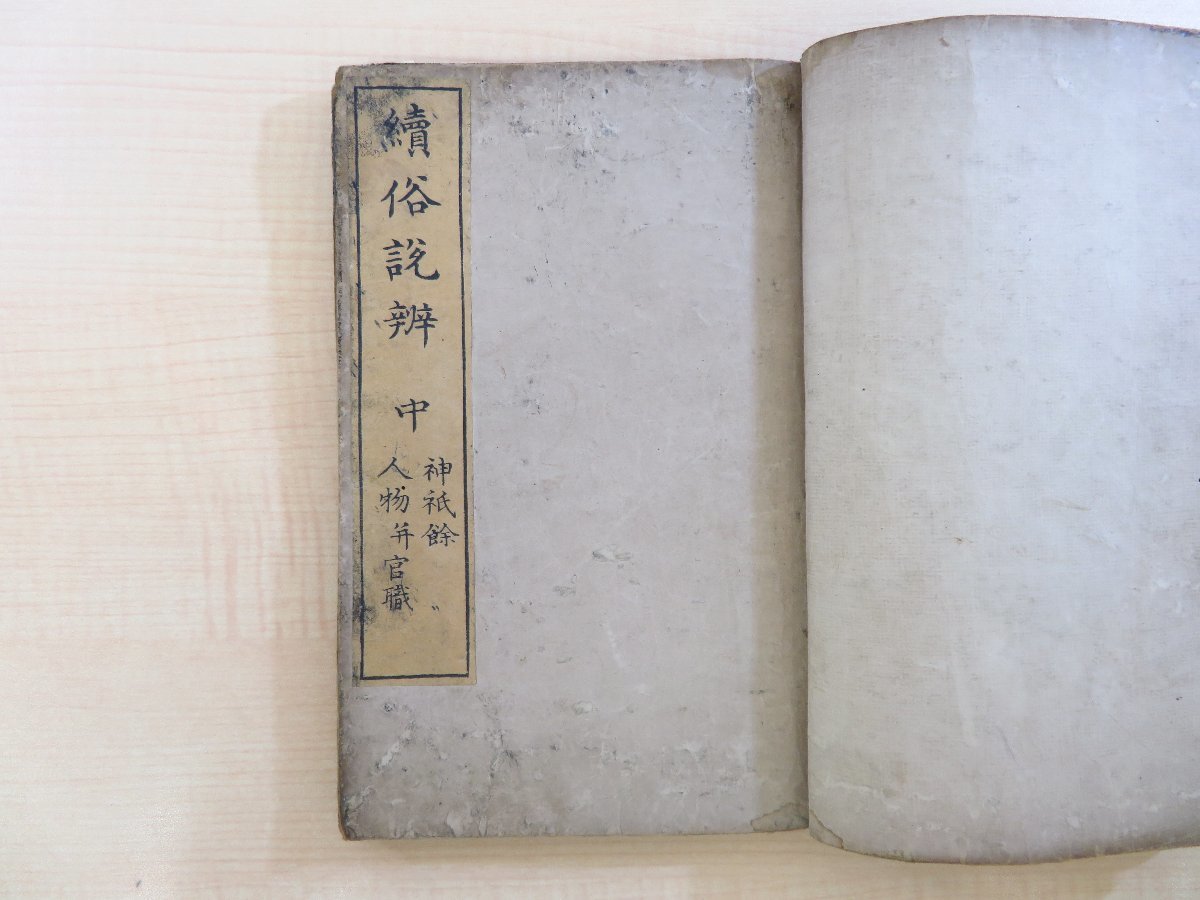 續俗說辨 中
神祇餘〃
人物并官職